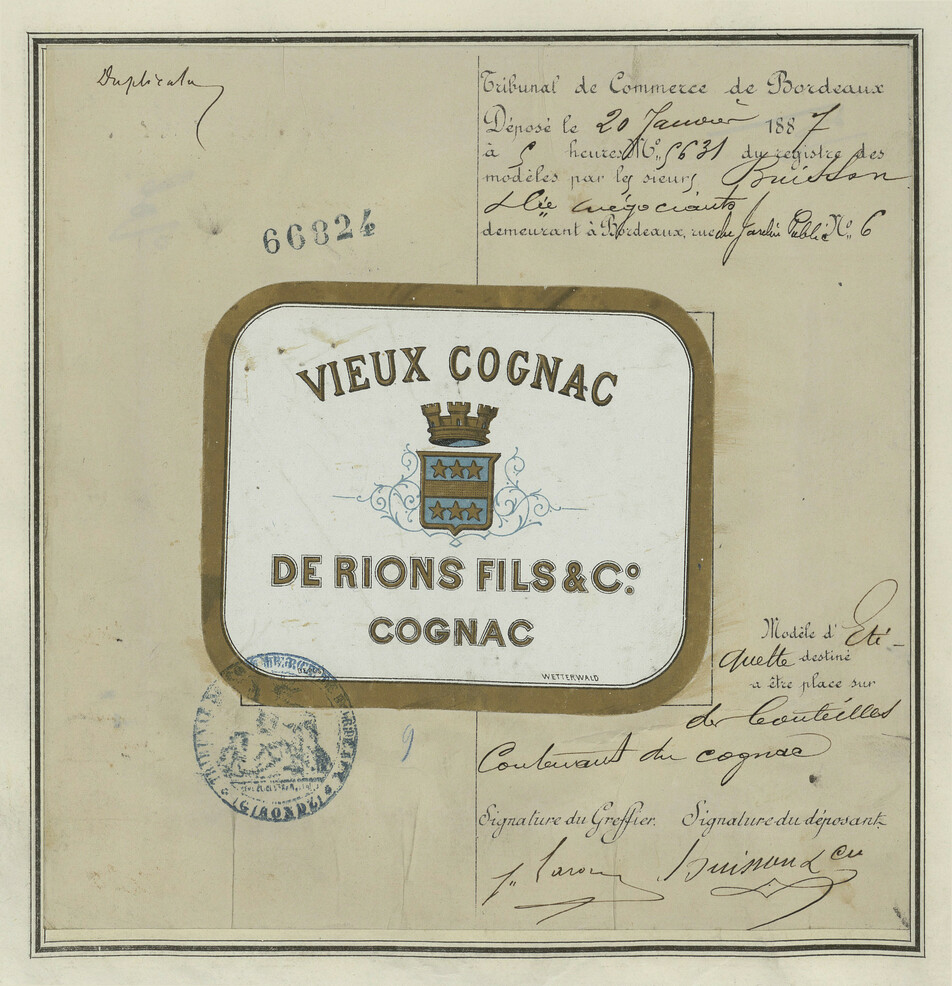 Duplicata
Tribunal de Commerce de Bordeaux
Déposé le 20 Janvier 1887
à 5 heures No. 5631 du registre des
modèles par les sieurs Buisson
& Cie négociants
demeurant à Bordeaux, rue du Jardin Public No. 6
66824
VIEUX COGNAC
DE RIONS FILS & Co.
COGNAC
WETTERWALD
Modèle d'Eti-
quette destiné
a être place sur
des bouteilles
Contenant du cognac
TRIBUNAL DE COMMERCE DE BORDEAUX
(GIRONDE)
9
Signature du Greffier. Signature du déposant.
Buisson & Cie